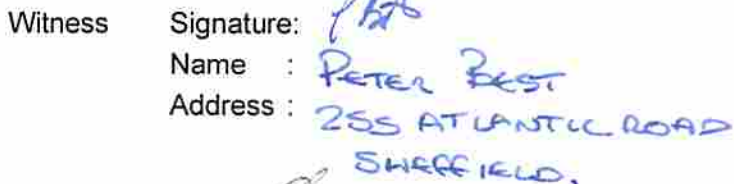 Witness Signature:
Name : PETER BEST
Address : 255 ATLANTIC ROAD
SHEFFIELD.